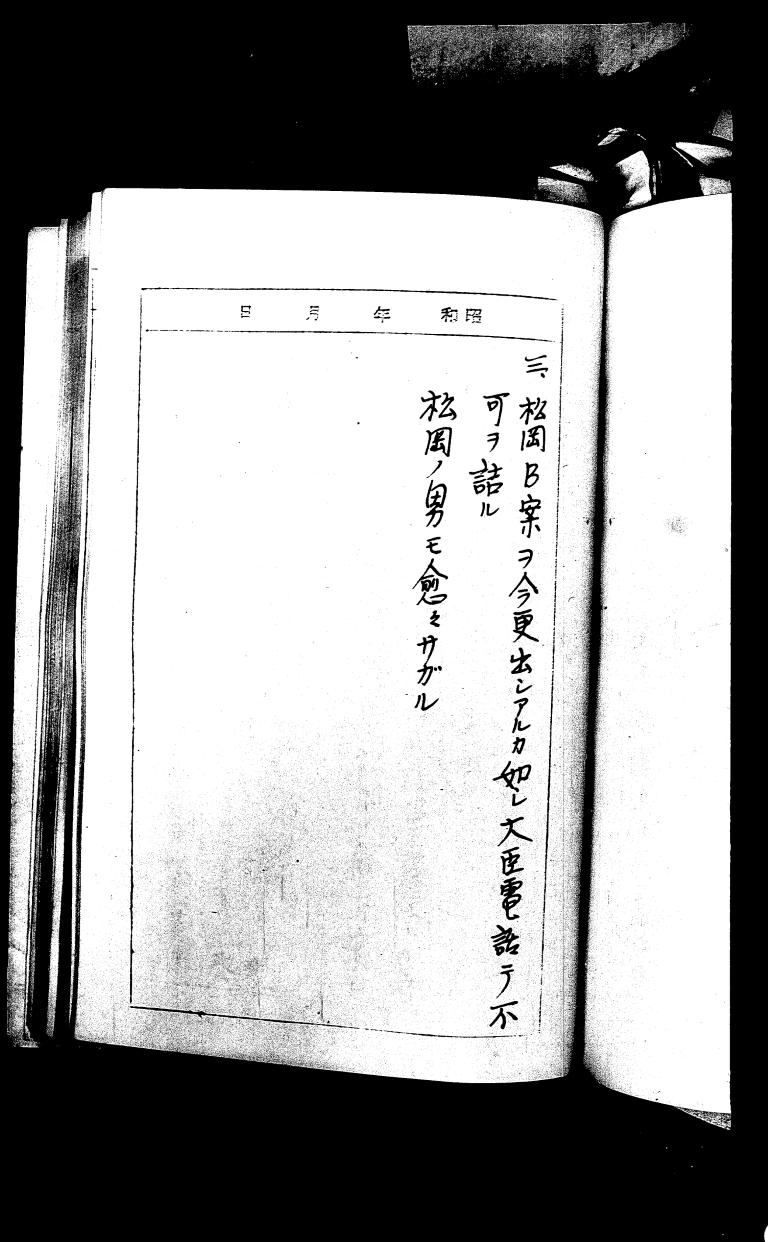 昭和 年 月 日
三、松岡B案ヲ今更出シアルカ如シ大臣電話テ不
可ヲ詰ル
松岡ノ男モ愈々サガル